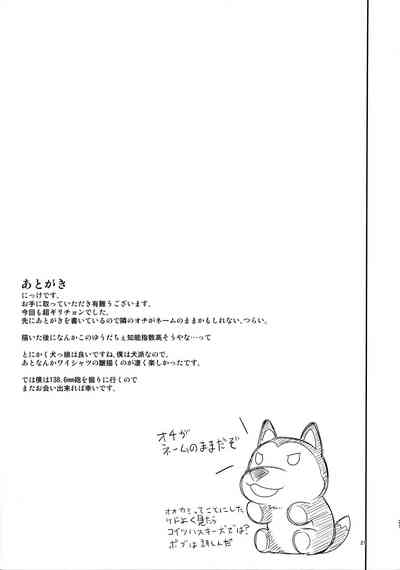 あとがき
にっけです。
お手に取っていただき有難うございます。
今回も超ギリチョンでした。
先にあとがきを書いているので隣のオチがネームのままかもしれない、つらい。
描いた後になんかこのゆうだちぇ知能指数高そうやな…って
とにかく犬っ娘は良いですね、僕は犬派なので。
あとなんかワイシャツの皺描くのが凄く楽しかったです。
では僕は138.6mm砲を掘りに行くので
またお会い出来れば幸いです。
オチが
ネームのままだぞ
オオカミってことにした
けどよく見たら
コイツハスキーズでは?
ボブは訝しんだ
21